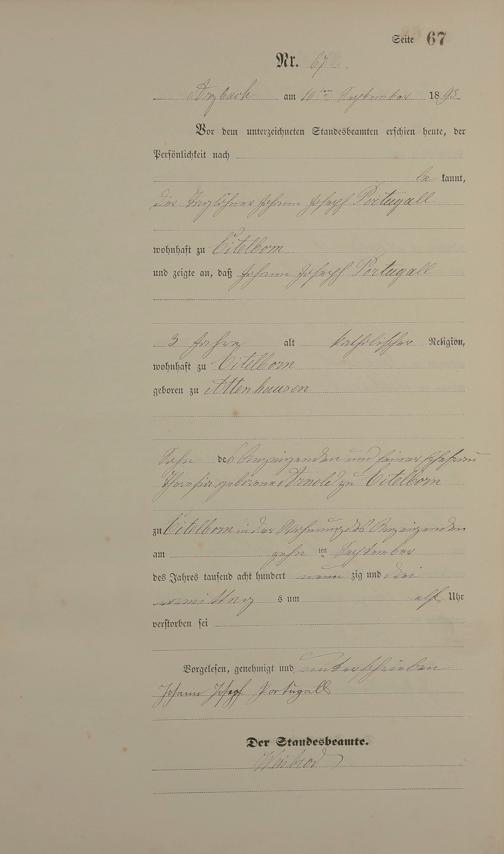 Seite 67
Nr. 67
Arzbach am 10ten September 1893
Vor dem unterzeichneten Standesbeamten erschien heute, der
Persönlichkeit nach
be kannt,
der Taglöhner Johann Joseph Portugall
wohnhaft zu Eitelborn
und zeigte an, daß Johann Joseph Portugall
3 Jahre alt katholischer Religion,
wohnhaft zu Eitelborn
geboren zu Attenhausen
Sohn des Anzeigenden und seiner Ehefrau
geborene Arnold zu Eitelborn
zu Eitelborn in der Wohnung des Anzeigenden
am zehn ten September
des Jahres tausend acht hundert neun zig und drei
vormittag s um elf Uhr
verstorben sei
Vorgelesen, genehmigt und unterschrieben
Johann Josef Portugall
Der Standesbeamte.